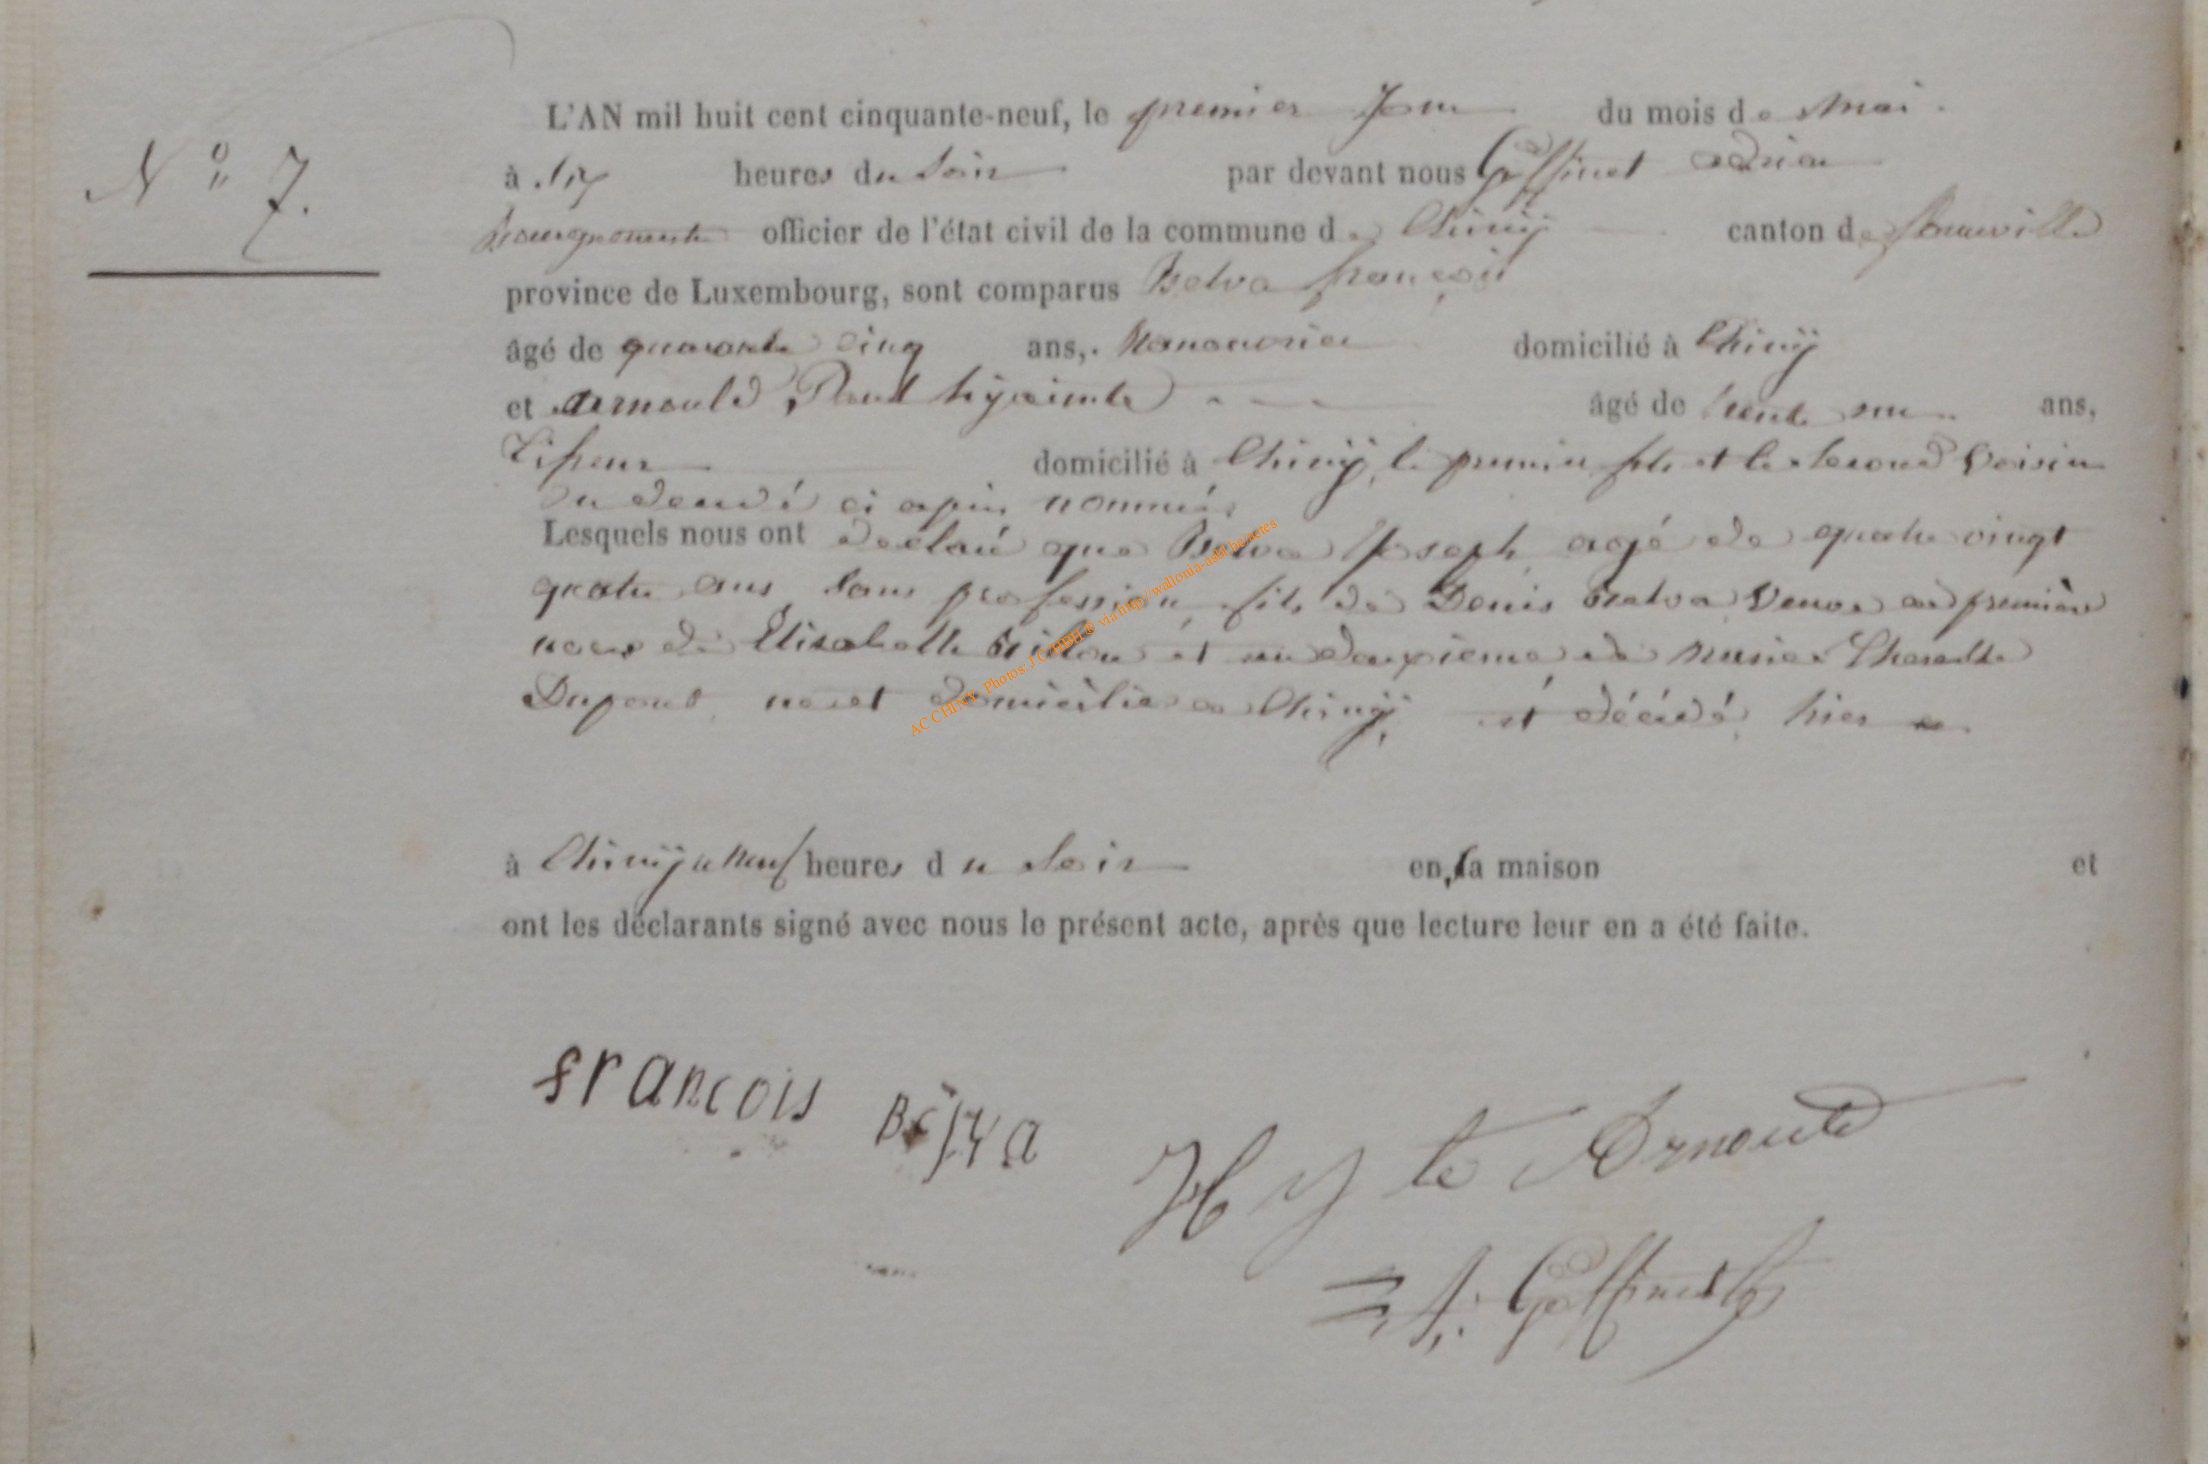 N° 7.
L'AN mil huit cent cinquante-neuf, le premier Jour du mois de Mai.
à six heures du soir par devant nous Goffinet adrien
Bourgmestre officier de l'état civil de la commune de Chiny canton de
province de Luxembourg, sont comparus Belva françois
âgé de quarante cinq ans, Manouvrier domicilié à Chiny
et Arnould, Paul hyacinte âgé de trente un ans,
domicilié à Chiny, le premier fils et le second Voisin
du décédé ci après nommé,
Lesquels nous ont declaré que Belva Joseph agé de quatre vingt
quatre ans sans profession, fils de Denis Belva Veuve en première
noce de Elisabeth et en deuxieme de Marie
Dupont, né et domicilié a Chiny, est décédé, hier
à Chiny a neuf heures du soir en sa maison et
ont les déclarants signé avec nous le présent acte, après que lecture leur en a été faite.
françois Belva
Hyte Arnould
A. Goffinet
AC CHINY - Photos J.C. HBH © via http://wallonia-asbl.be/actes